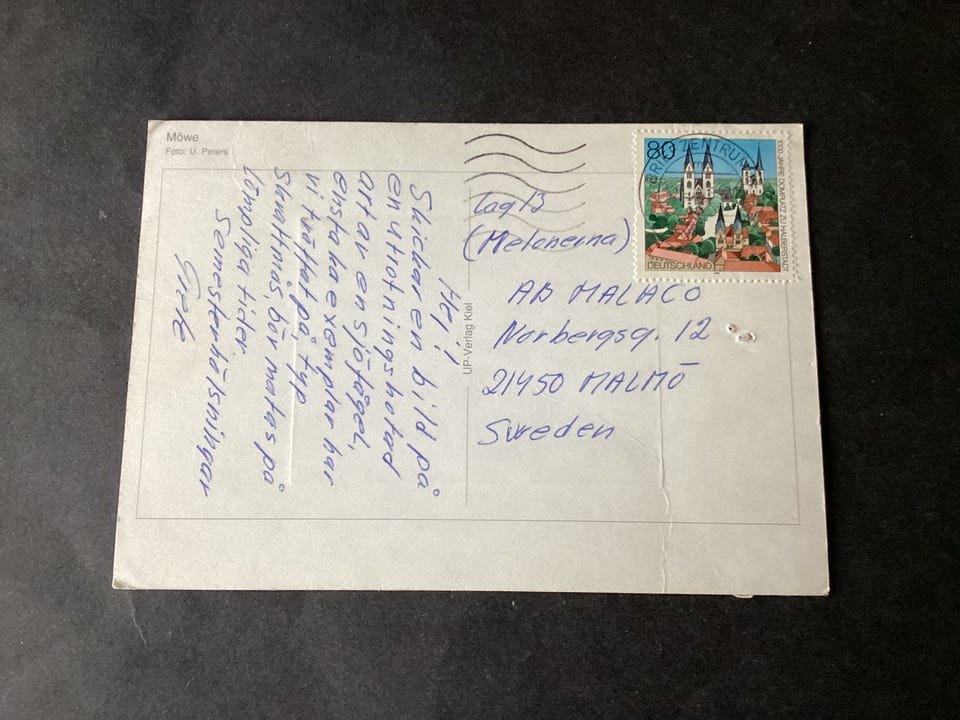 Möwe
Foto: U. Peters
Hej!
Skickar en bild på
en utrotningshotad
art av en sjöfågel,
enstaka exemplar har
vi träffat på, typ
Skrattmås, bör matas på
lämpliga tider.
Semesterhälsningar
UP-Verlag Kiel
Lag 13
(Melanerna)
AB MALACO
Norbergsg. 12
21450 MALMÖ
Sweden
80
1000 JAHRE DOMPLATZ ZU HALBERSTADT
DEUTSCHLAND
BRIEFZENTRUM